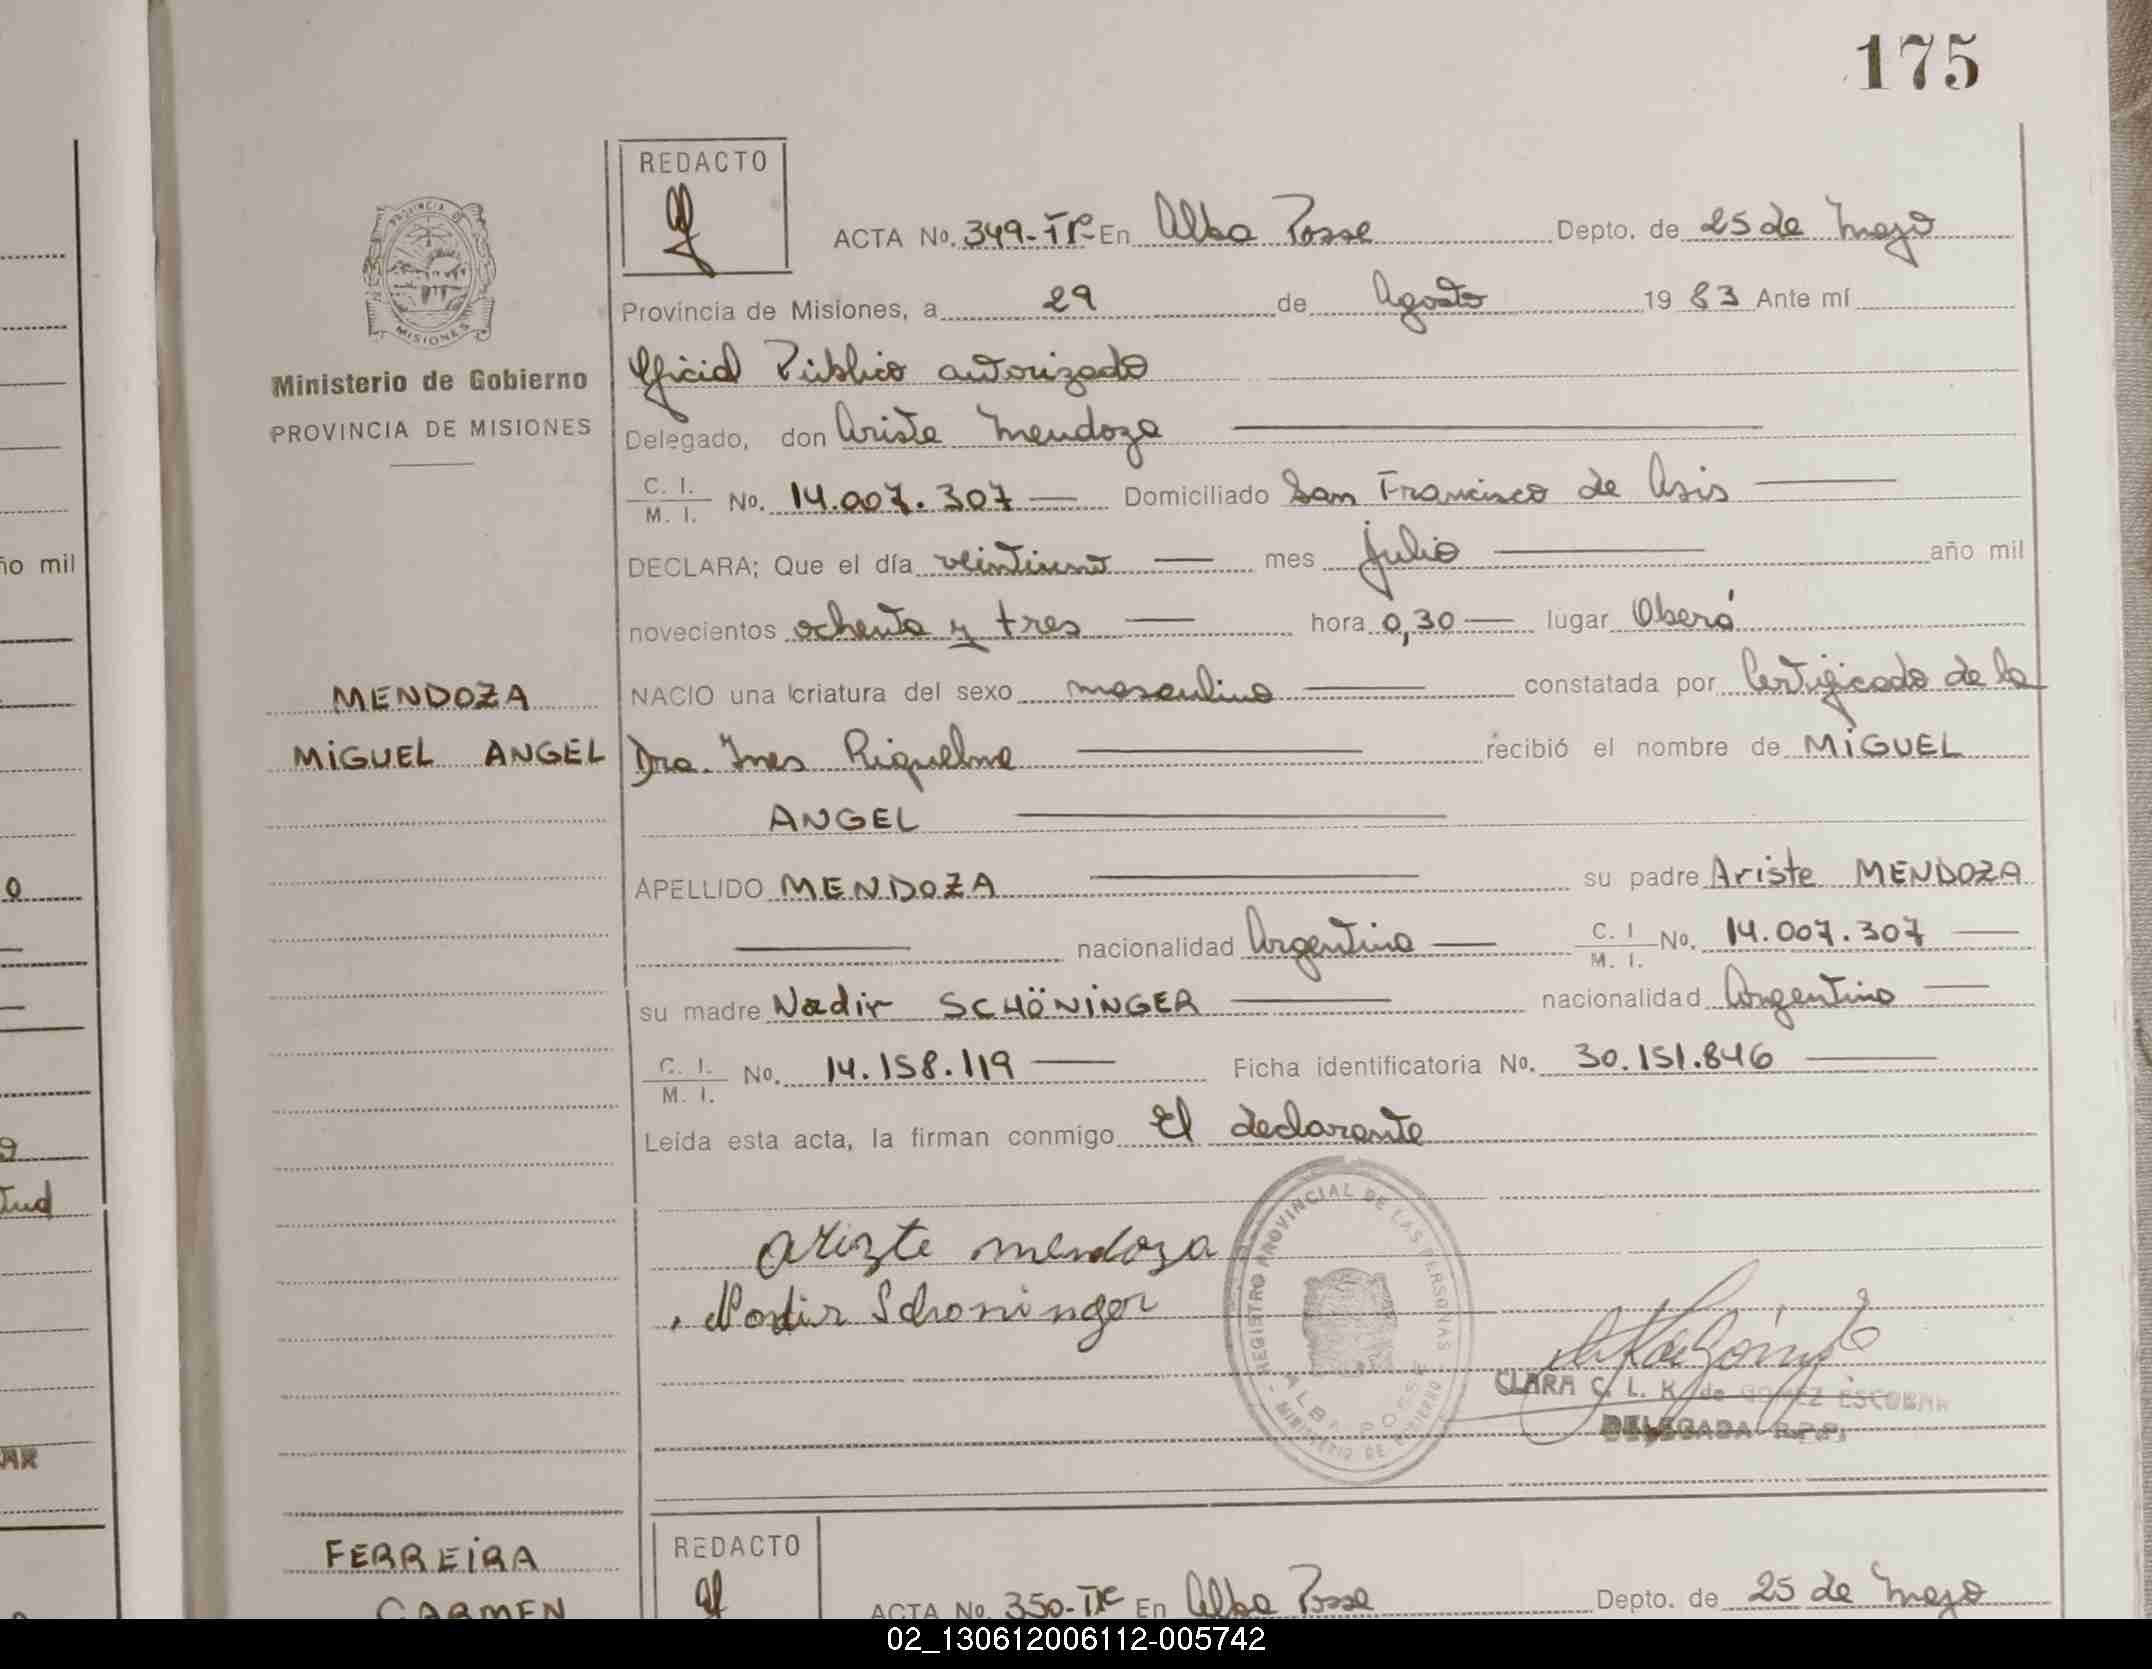 175
REDACTO
ACTA No. 349-Tº En Alba Posse Depto. de 25 de Mayo
Provincia de Misiones, a 29 de Agosto 19 83 Ante mí
PROVINCIA DE
MISIONES
Ministerio de Gobierno
PROVINCIA DE MISIONES
Oficial Público autorizado
Delegado, don Ariste Mendoza
C. I.
M. I. No. 14.007.307 Domiciliado San Francisco de Asis
DECLARA; Que el día veintiuno mes julio año mil
novecientos ochenta y tres hora 0,30 lugar Oberá
MENDOZA
NACIO una criatura del sexo masculino constatada por Certificado de la
MIGUEL ANGEL
Dra. Ines Riquelme recibió el nombre de MIGUEL
ANGEL
APELLIDO MENDOZA su padre Ariste MENDOZA
nacionalidad Argentina C. I. M. I. No. 14.007.307
su madre Nadir SCHÖNINGER nacionalidad Argentina
C. I.
M. I. No. 14.158.119 Ficha identificatoria No. 30.151.846
Leída esta acta, la firman conmigo El declarante
arizte mendoza
Nadir Schoninger
REGISTRO PROVINCIAL DE LAS PERSONAS
ALBA POSSE
MINISTERIO DE GOBIERNO
CLARA C. L. K. de GOMEZ ESCOBAR
DELEGADA R.P.P.
FERREIRA
CARMEN
REDACTO
ACTA No. 350-Tº En Alba Posse Depto. de 25 de Mayo
ño mil
02_130612006112-005742